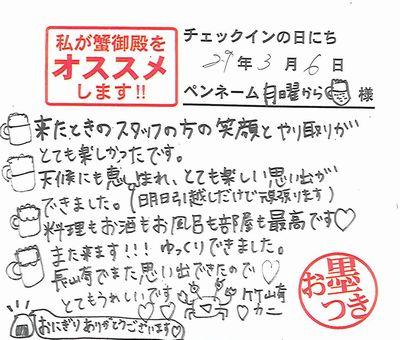 私が蟹御殿を
オススメ
します!!
チェックインの日にち
29年3月6日
ペンネーム 月曜から 様
来たときのスタッフの方の笑顔とやり取りが
とても楽しかったです。
天候にも恵まれ、とても楽しい思い出が
できました。(明日引越しだけど頑張ります)
料理もお酒もお風呂も部屋も最高です♡
また来ます!!! ゆっくりできました。
でまた思い出できたので♡
とてもうれしいです
カニ
おにぎりありがとうございます♡
お墨つき